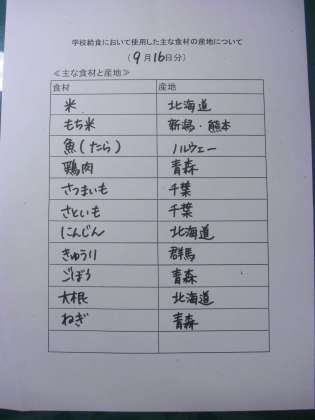 学校給食において使用した主な食材の産地について
(9月16日分)
≪主な食材と産地≫
食材 産地
米 北海道
もち米 新潟・熊本
魚(たら) ノルウェー
鶏肉 青森
さつまいも 千葉
さといも 千葉
にんじん 北海道
きゅうり 群馬
ごぼう 青森
大根 北海道
ねぎ 青森